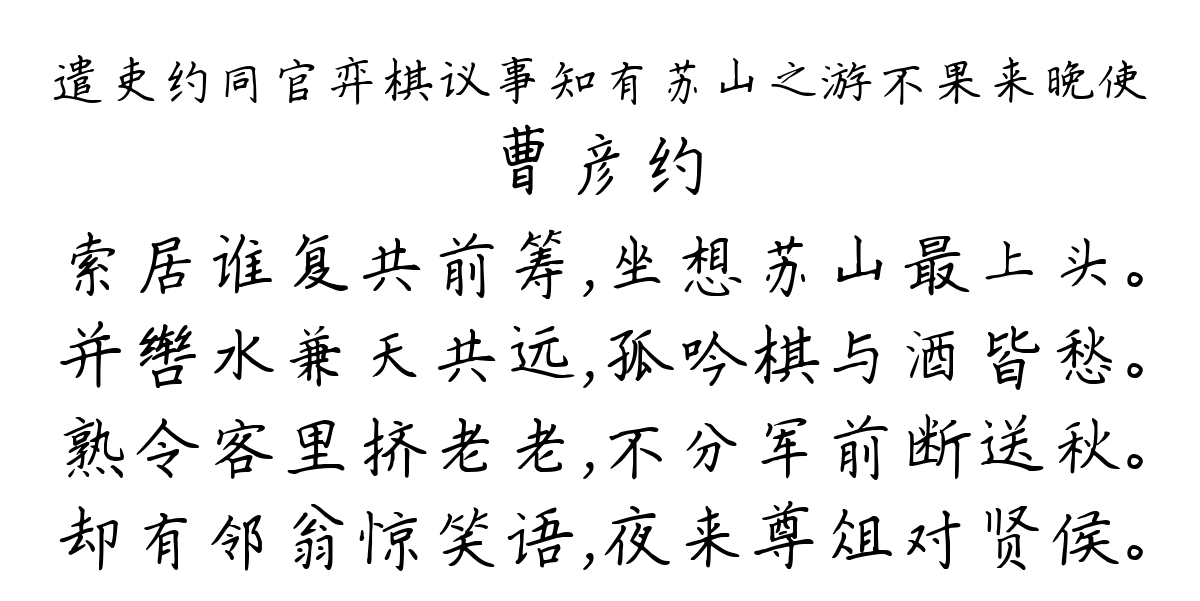 遣吏约同官弈棋议事知有苏山之游不果来晚使
曹彦约
索居谁复共前筹,坐想苏山最上头。
并辔水兼天共远,孤吟棋与酒皆愁。
熟令客里挤老老,不分军前断送秋。
却有邻翁惊笑语,夜来尊俎对贤侯。